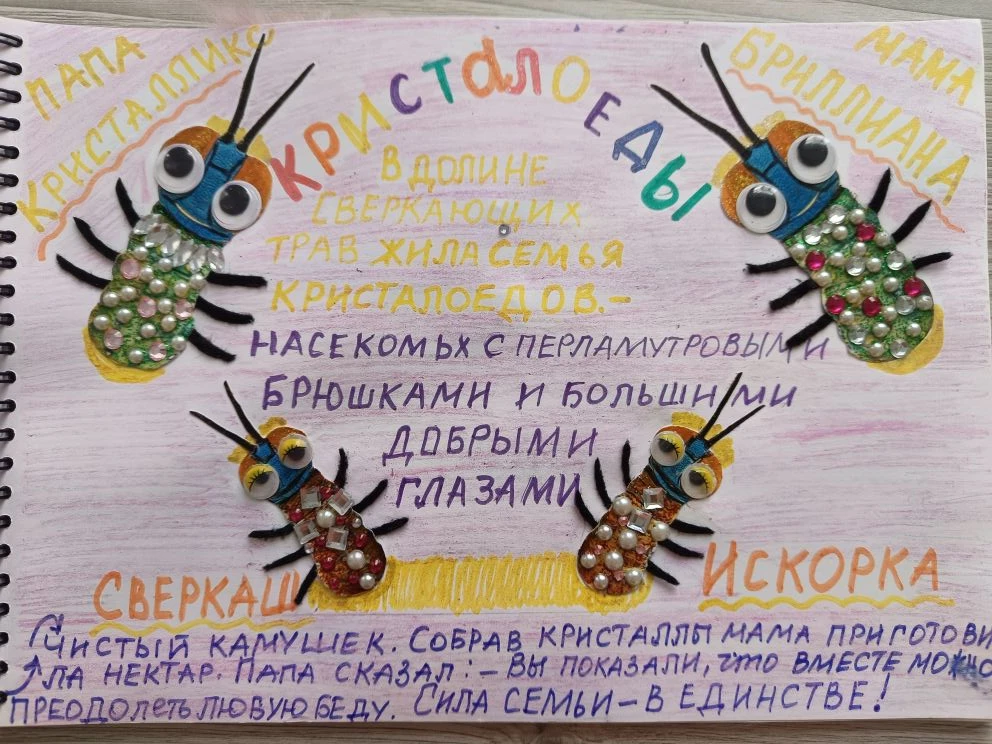 ПАПА
КРИСТАЛЛИКС
КРИСТАЛОЕДЫ
МАМА
БРИЛЛИАНА
В ДОЛИНЕ
СВЕРКАЮЩИХ
ТРАВ ЖИЛА СЕМЬЯ
КРИСТАЛОЕДОВ.–
НАСЕКОМЫХ С ПЕРЛАМУТРОВЫМИ
БРЮШКАМИ И БОЛЬШИМИ
ДОБРЫМИ
ГЛАЗАМИ
СВЕРКАШ
ИСКОРКА
ЧИСТЫЙ КАМУШЕК. СОБРАВ КРИСТАЛЛЫ МАМА ПРИГОТОВИ
ЛА НЕКТАР. ПАПА СКАЗАЛ: – ВЫ ПОКАЗАЛИ, ЧТО ВМЕСТЕ МОЖНО
ПРЕОДОЛЕТЬ ЛЮБУЮ БЕДУ. СИЛА СЕМЬИ – В ЕДИНСТВЕ!